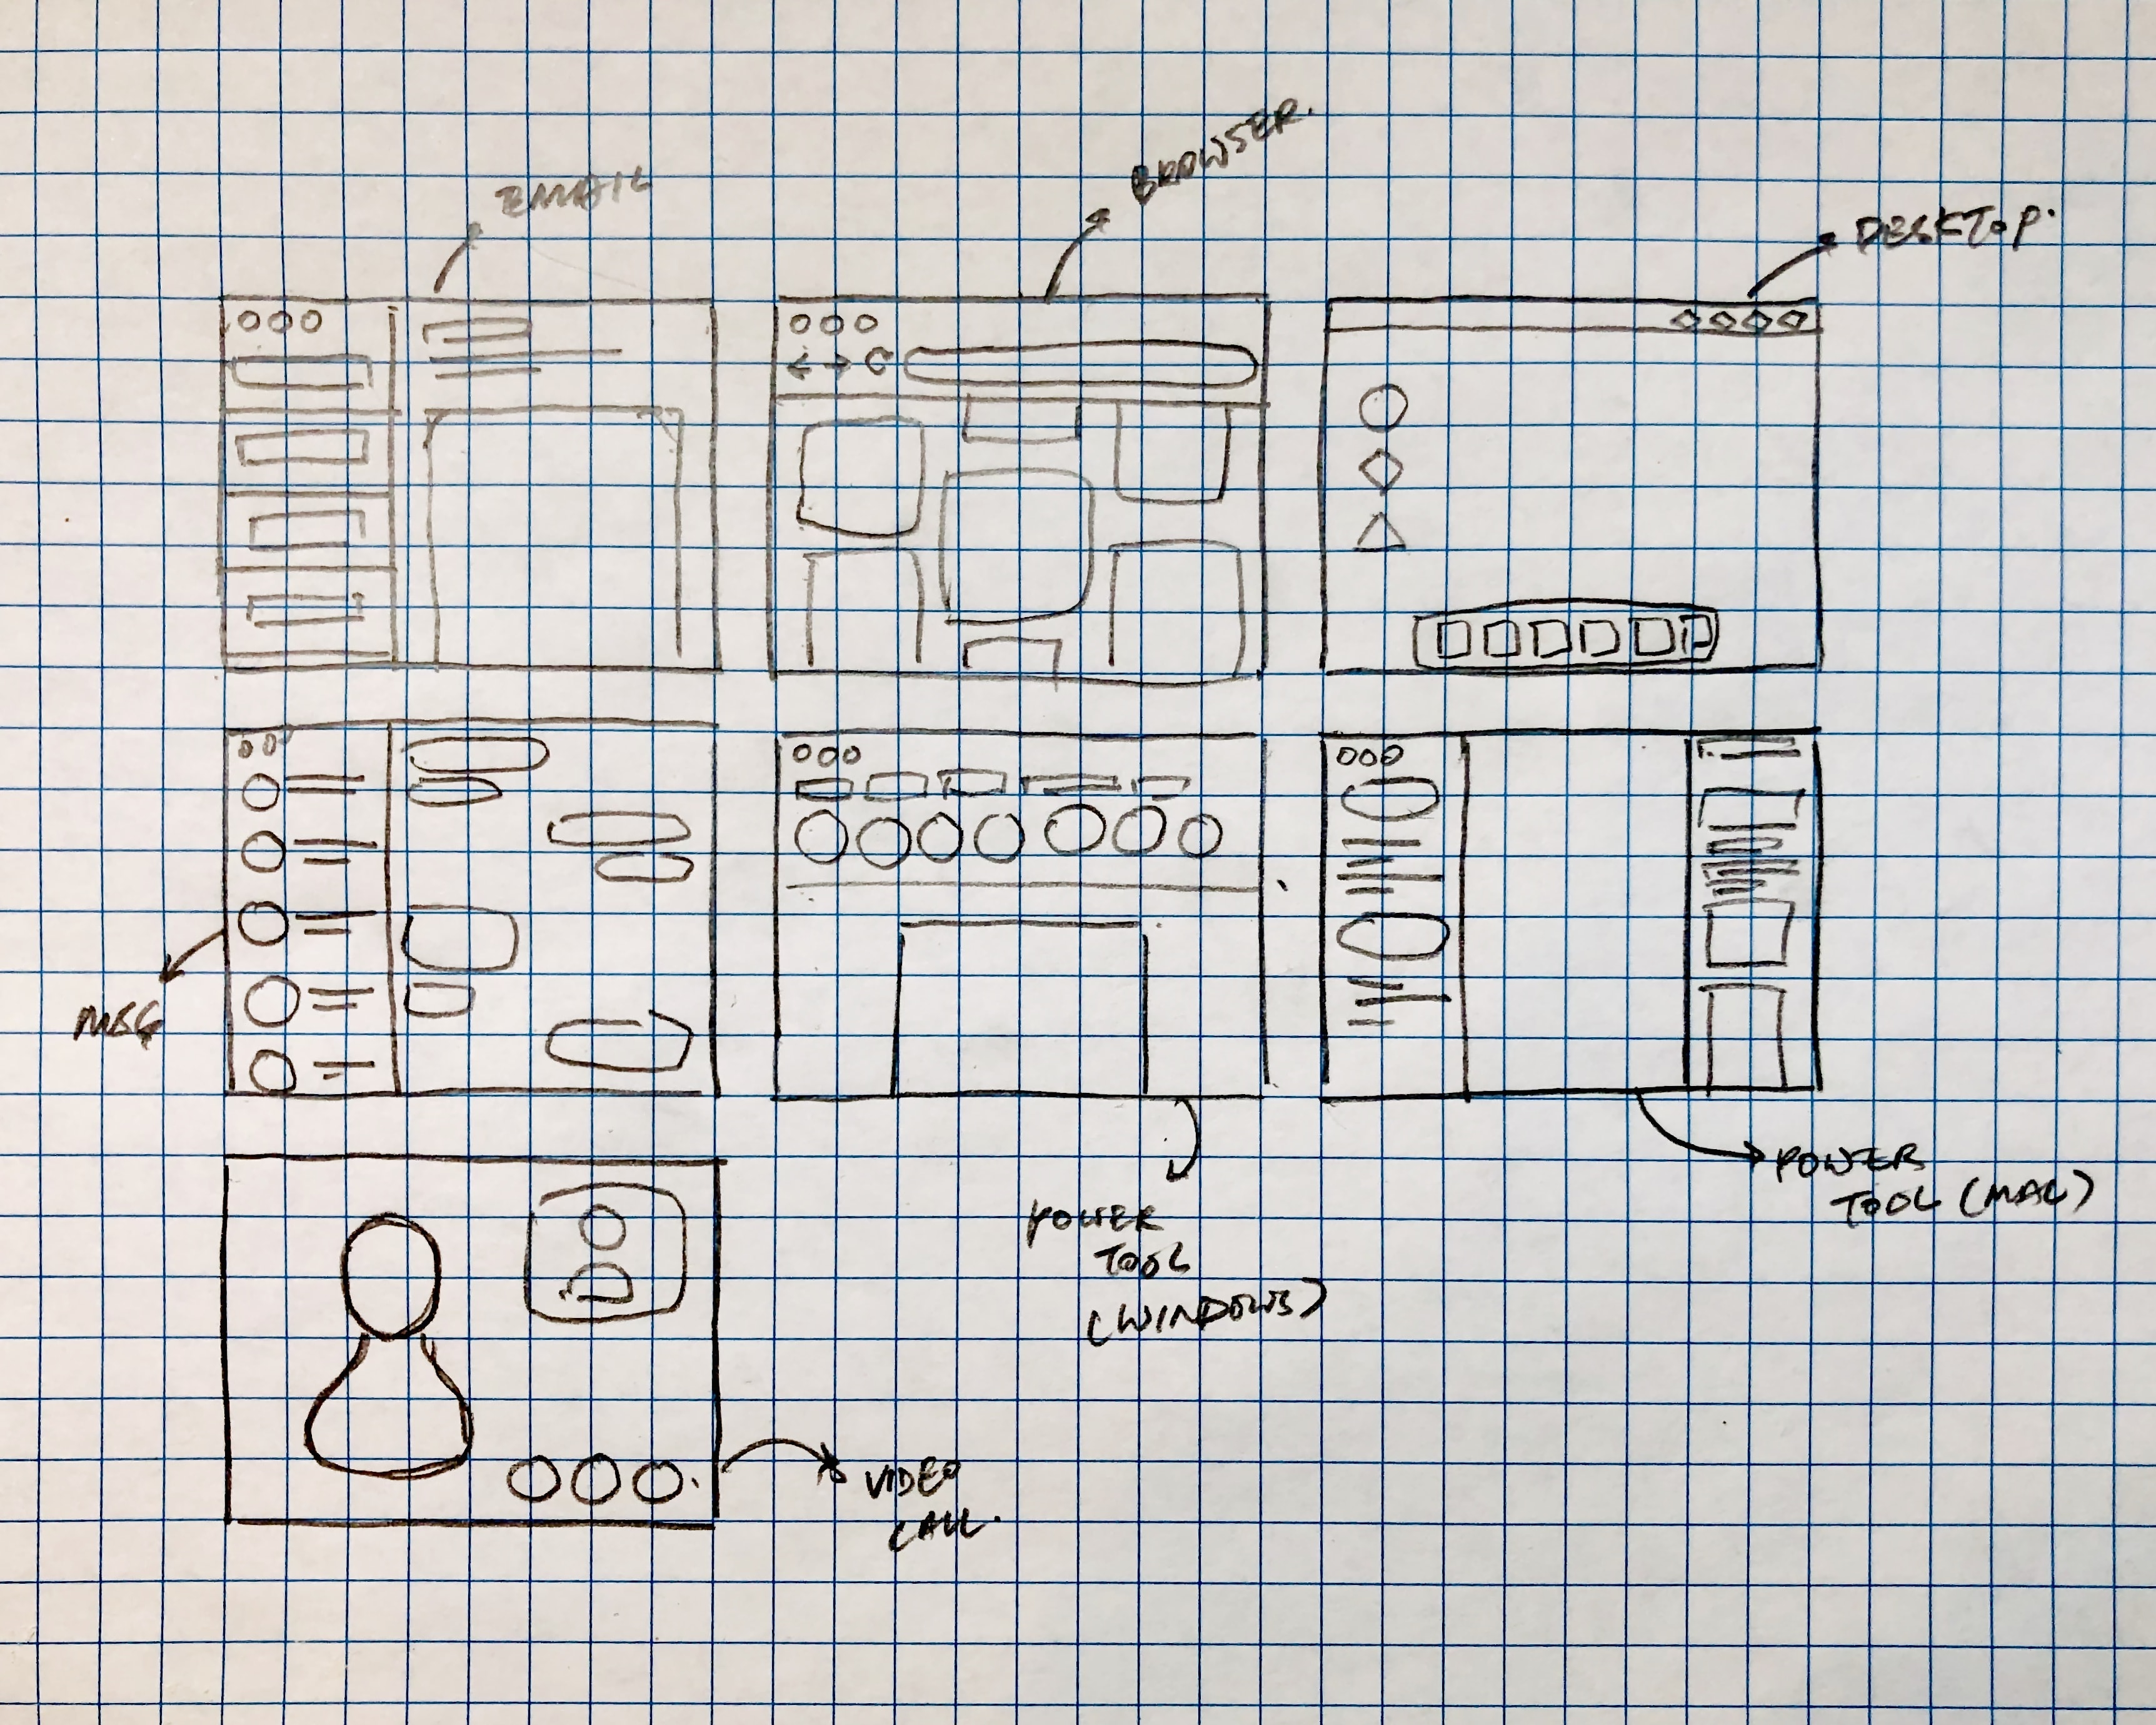 EMAIL
BROWSER.
DESKTOP.
MSG
POWER
TOOL
(WINDOWS)
POWER
TOOL (MAC)
VIDEO
CALL.